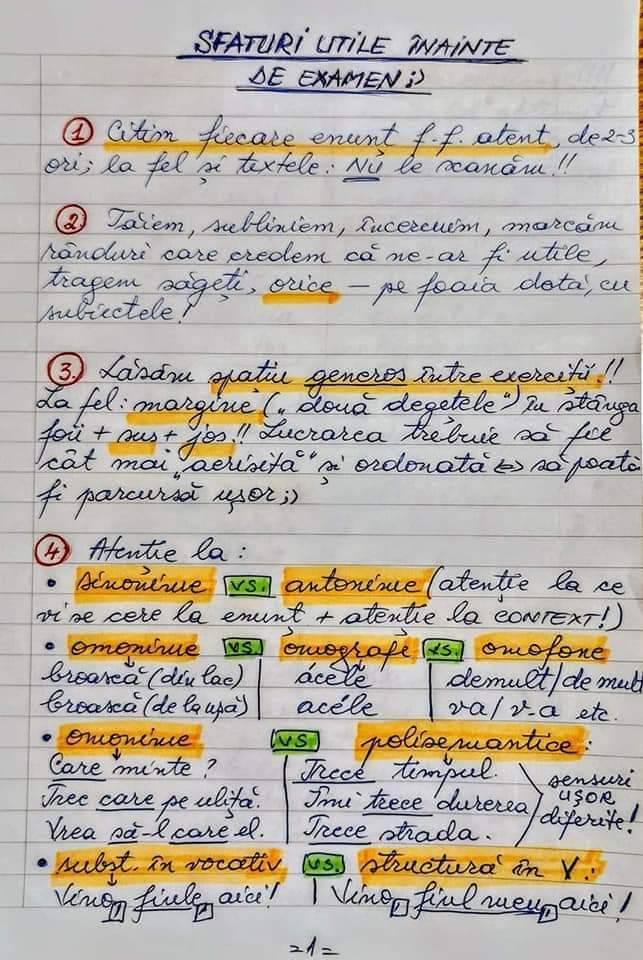 SFATURI UTILE ÎNAINTE
DE EXAMEN ;)
① Citim fiecare enunț f.f. atent, de 2-3
ori; la fel și textele: NU le scanăm!!
② Tăiem, subliniem, încercuim, marcăm
rânduri care credem că ne-ar fi utile,
tragem săgeți, orice – pe foaia dată, cu
subiectele!
③. Lăsăm spațiu generos între exerciții!!
La fel: margine („două degetele") în stânga
foii + sus + jos!! Lucrarea trebuie să fie
cât mai „aerisită" și ordonată <=> să poată
fi parcursă ușor ;)
④ Atenție la:
• sinonime vs. antonime (atenție la ce
vi se cere la enunț + atenție la CONTEXT!)
• omonime vs. omografe vs. omofone
broască (din lac) ácele demult/de mult
broască (de la ușă) acéle va/v-a etc.
• omonime vs polisemantice:
Care minte? Trece timpul.
Trec care pe uliță. Îmi trece durerea
Vrea să-l care el. Trece strada.
sensuri
UȘOR
diferite!
• subst. în vocativ vs. structură în V.:
Vino, fiule, aici! Vino, fiul meu, aici!
=1=